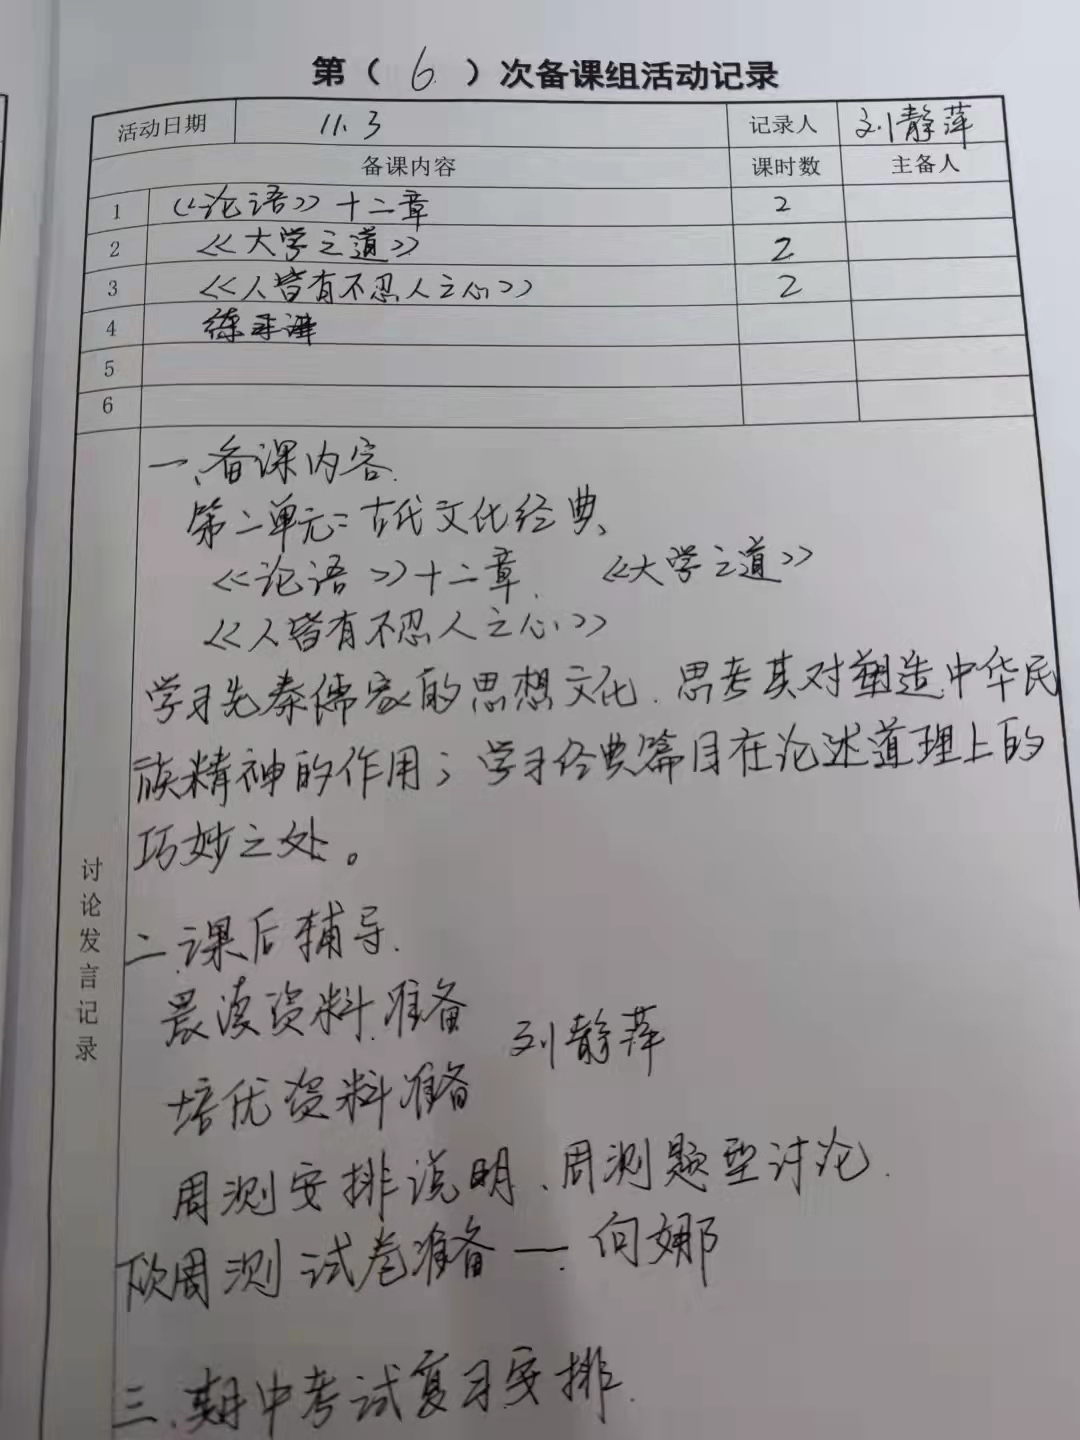 第（6）次备课组活动记录
活动日期 11.3 记录人 刘静萍
备课内容 课时数 主备人
1 《论语》十二章 2
2 《大学之道》 2
3 《人皆有不忍人之心》 2
4 练习课
5
6
讨论发言记录
一、备课内容.
第二单元：古代文化经典、
《论语》十二章. 《大学之道》
《人皆有不忍人之心》
学习先秦儒家的思想文化、思考其对塑造中华民
族精神的作用；学习经典篇目在论述道理上的
巧妙之处。
二.课后辅导.
晨读资料准备
刘静萍
培优资料准备
周测安排说明、周测题型讨论.
周测试卷准备 — 向娜
三、期中考试复习安排.